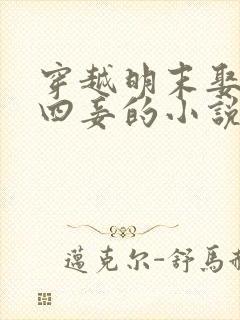 穿越明末娶
四妾的小說
邁克尔-舒馬赫